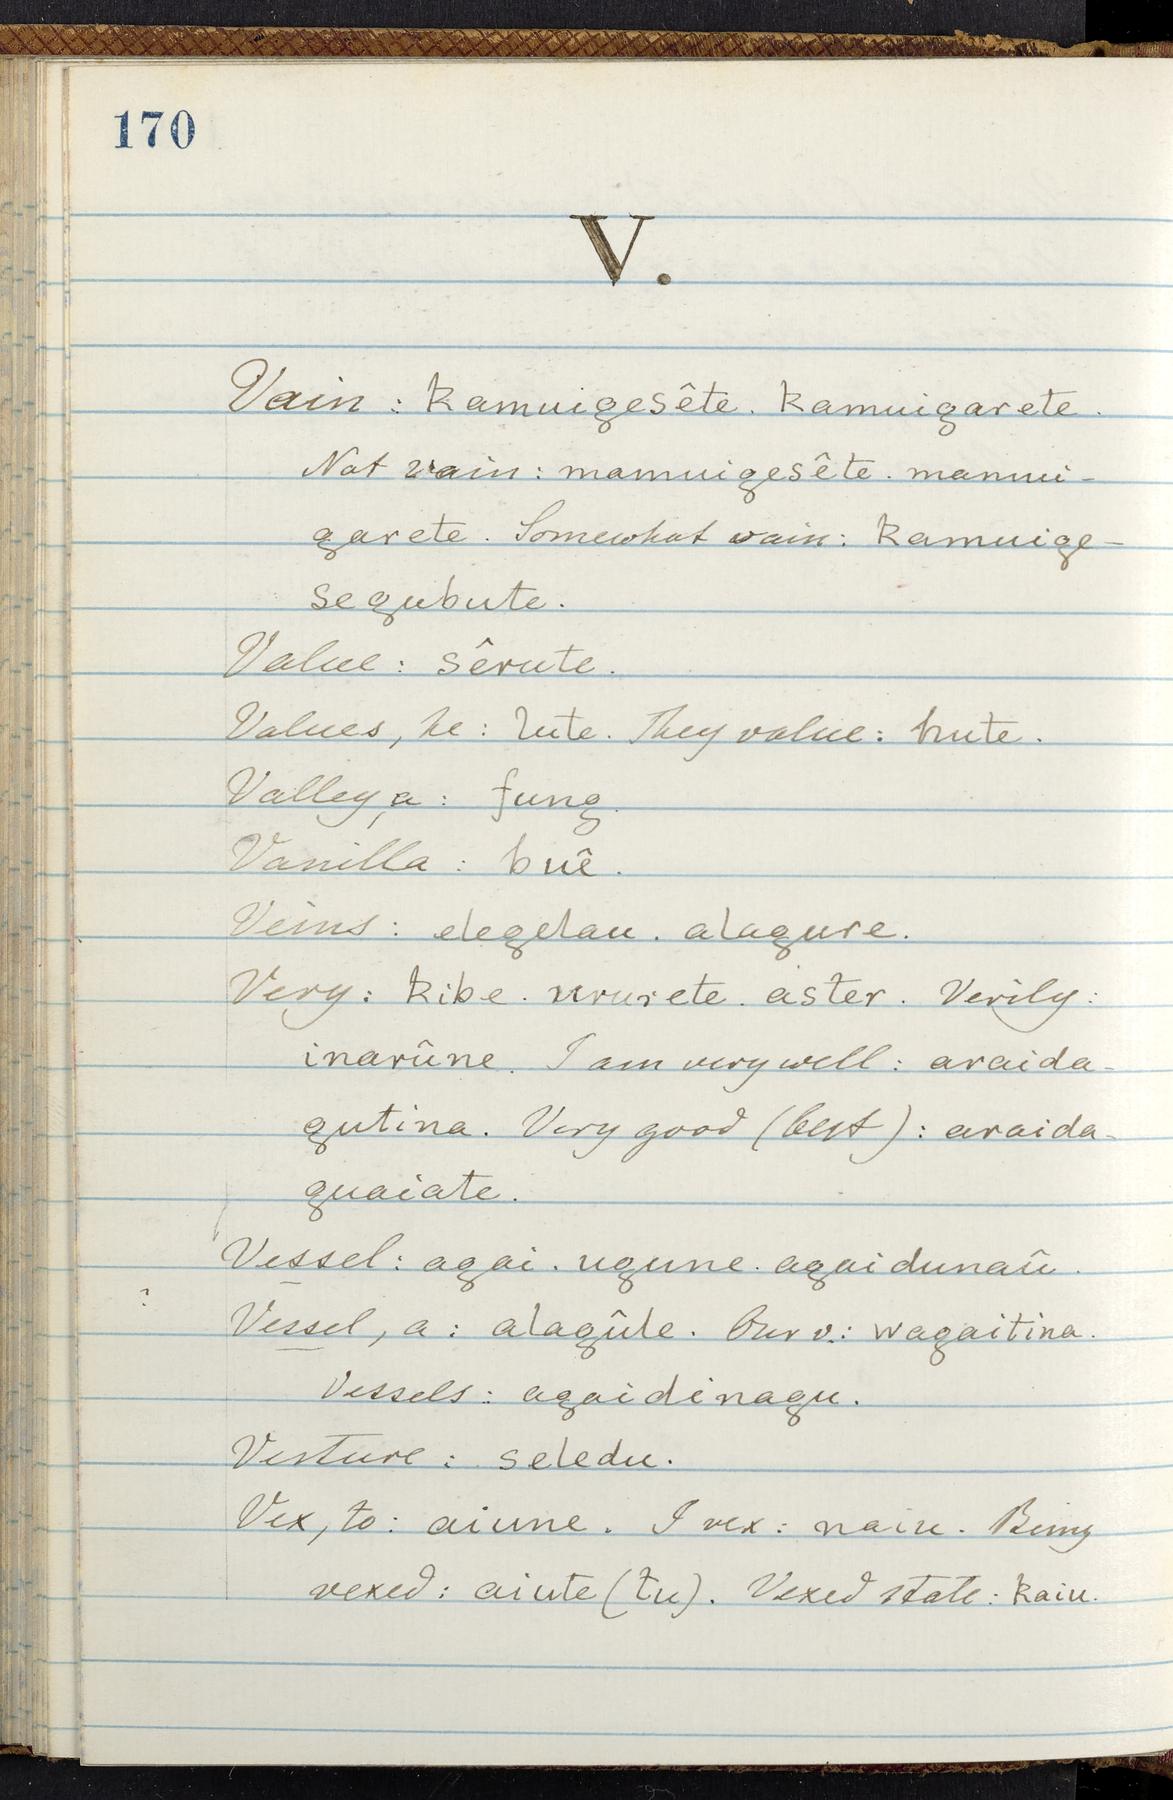 170
V.
Vain : kamuigesête. kamuigarete.
Not vain : mamuigesête. mamui-
garete. Somewhat vain : kamuige-
segubute.
Value : sêrute.
Values, he : lute. They value : hute.
Valley, a : fung.
Vanilla : buê.
Veins : elegelau. alagure.
Very : kibe. urusete. aster. Verily :
inarûne. I am very well : araida-
gutina. Very good (best) : araida-
guaiate.
Vessel : agai. ugune. agaidunaû.
? Vessel, a : alagûle. Our v. : wagaitina.
Vessels : agaidinagu.
Vesture : seledu.
Vex, to : aiune. I vex : naiu. Being
vexed : aiute (tu). Vexed state : kaiu.